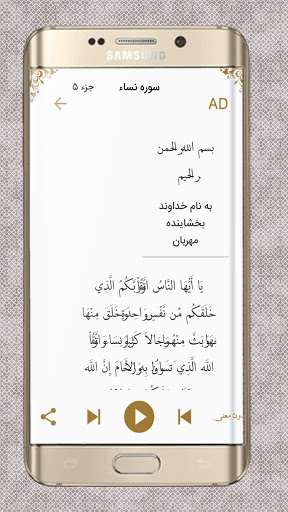 SAMSUNG
جزء ۵
سوره نساء
AD
بسم الله الرحمن
الرحیم
به نام خداوند
بخشاینده
مهربان
يَا أَيُّهَا النَّاسُ اتَّقُوا رَبَّكُمُ الَّذِي
خَلَقَكُم مِّن نَّفْسٍ وَاحِدَةٍ وَخَلَقَ مِنْهَا
اللَّهَ الَّذِي تَسَاءَلُونَ بِهِ وَالْأَرْحَامَ إِنَّ اللَّهَ